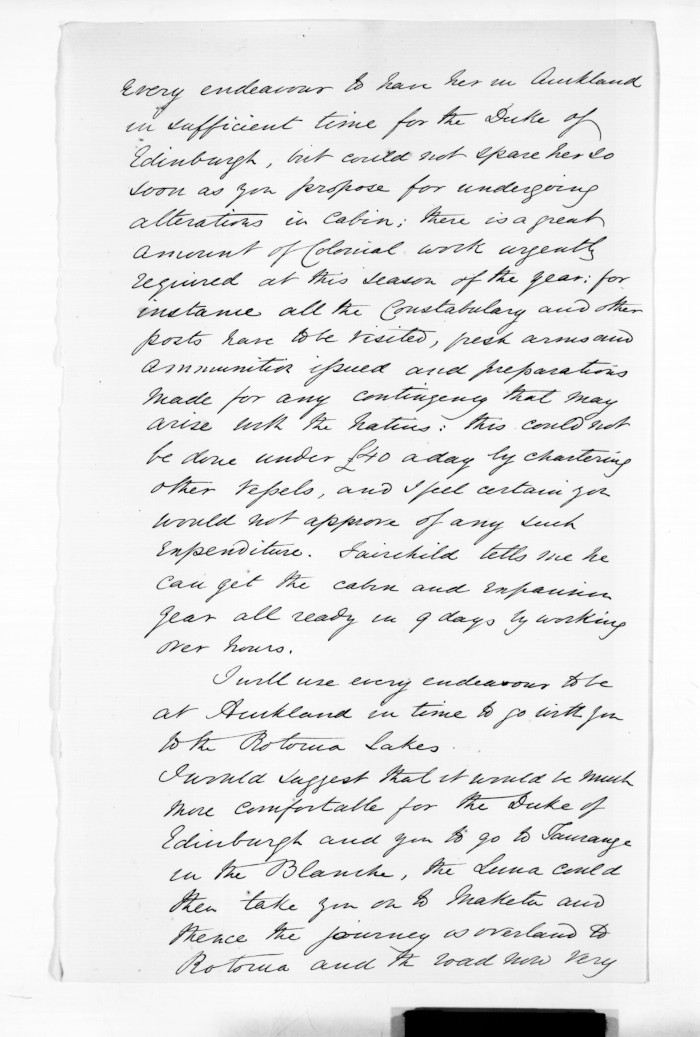 Every endeavour to have her in Auckland
in sufficient time for the Duke of
Edinburgh, but could not spare her so
soon as you propose for undergoing
alterations in Cabin; there is a great
amount of Colonial work urgently
required at this season of the year; for
instance all the Constabulary and other
posts have to be visited, fresh arms and
ammunition issued and preparations
made for any contingency that may
arise with the Natives: this could not
be done under £40 a day by chartering
other vessels, and I feel certain you
would not approve of any such
Expenditure. Fairchild tells me he
can get the cabin and expansion
gear all ready in 9 days by working
over hours.
I will use every endeavour to be
at Auckland in time to go with you
to the Rotorua Lakes.
I would suggest that it would be much
more comfortable for the Duke of
Edinburgh and you to go to Tauranga
in the Blanche, the Luna could
then take you on to Maketu and
thence the journey is overland to
Rotorua and the road now very